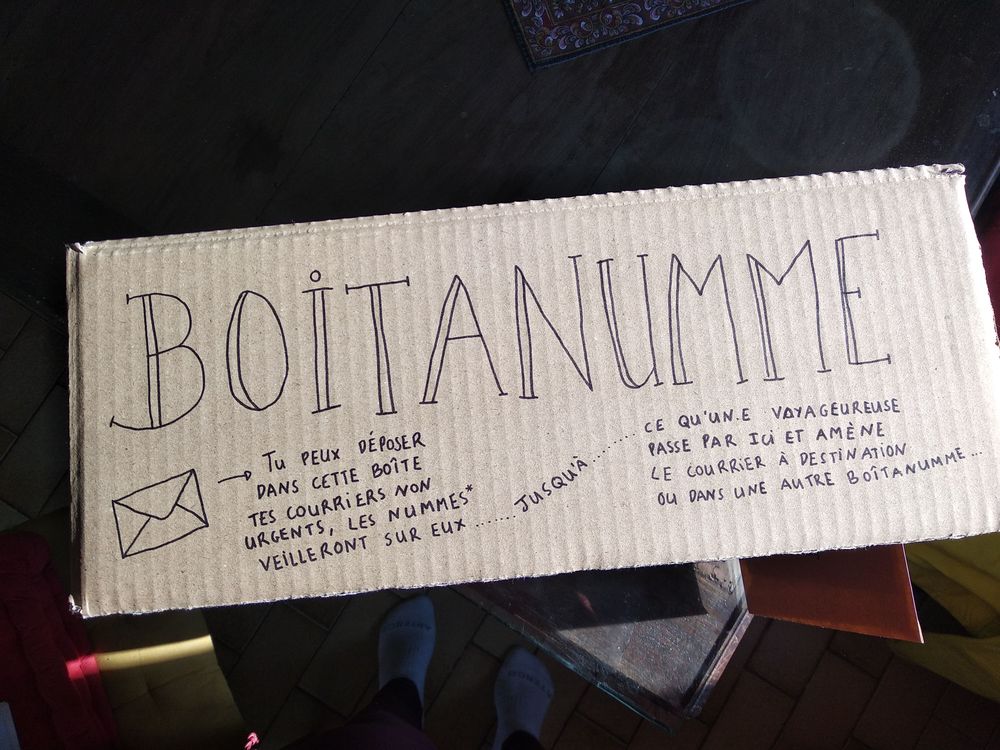 BOITANUMME
TU PEUX DÉPOSER
DANS CETTE BOÎTE
TES COURRIERS NON
URGENTS, LES NUMMES*
VEILLERONT SUR EUX ....... JUSQU'À ......
CE QU'UN.E VOYAGEUREUSE
PASSE PAR ICI ET AMÈNE
LE COURRIER À DESTINATION
OU DANS UNE AUTRE BOÎTANUMME...